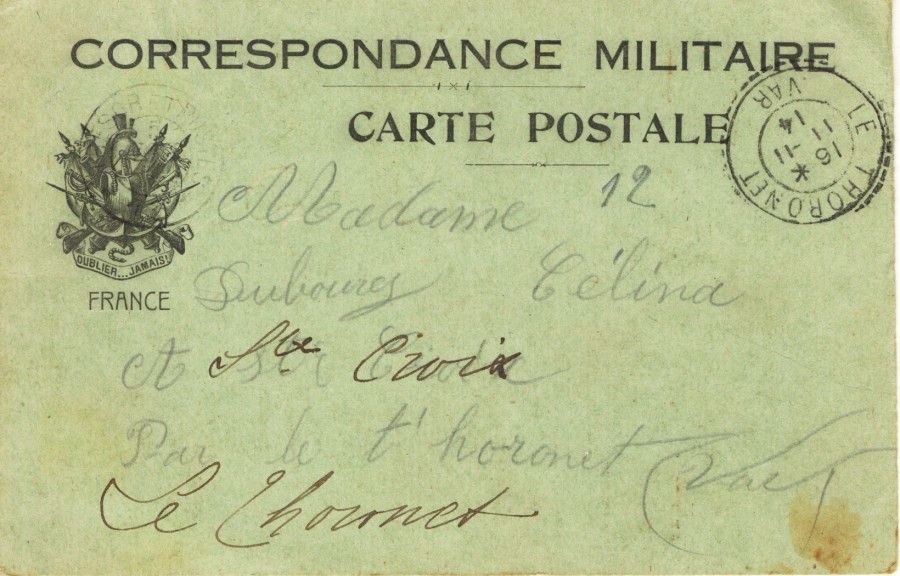 CORRESPONDANCE MILITAIRE
CARTE POSTALE
LE THORONET
VAR
14
11 -11
16
*
OUBLIER...JAMAIS!
FRANCE
Madame 12
Dubourg Célina
A Ste Croix
Par le t'horonet (Var)
Le Thoronet